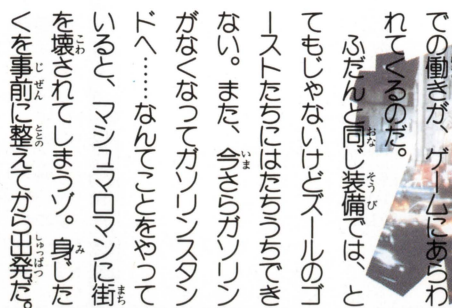 での働きが、ゲームにあらわ
れてくるのだ。
　ふだんと同じ装備では、と
てもじゃないけどズールのゴ
ーストたちにはたちうちでき
ない。また、今さらガソリン
がなくなってガソリンスタン
ドへ……なんてことをやって
いると、マシュマロマンに街
を壊されてしまうゾ。身じた
くを事前に整えてから出発だ。